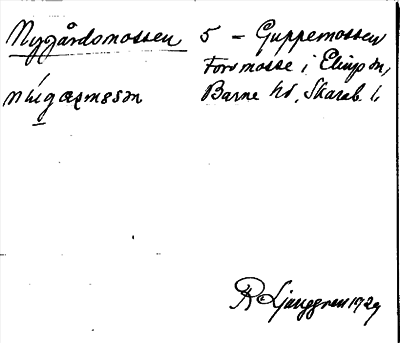 Nygårdsmossen 5 – Guppemossen
Torvmosse i Elings sn,
Barne hd, Skarab. l.
R Ljunggren 1929